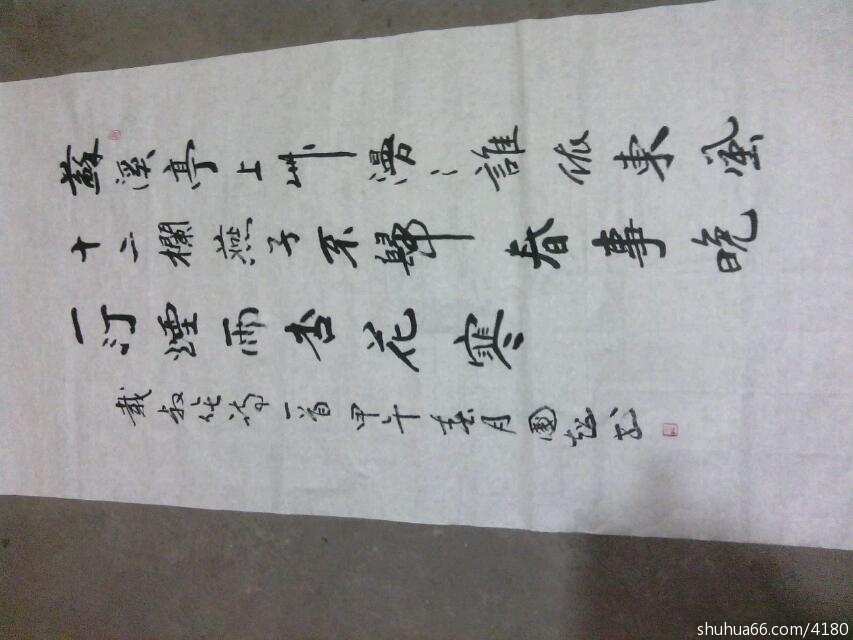 蘇溪亭上艸漫〻誰依東風
十二欄燕子不歸春事晚
一汀煙雨杏花寒
戴叔倫詩一首甲午春月國超書
shuhua66.com/4180